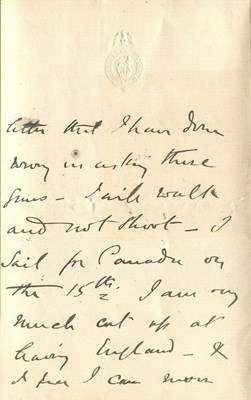 letter that I have done
wrong in asking these
guns - I will walk
and not shoot - I
sail for Canada on
the 15th. I am very
much cut up at
leaving England - &
I fear I can never